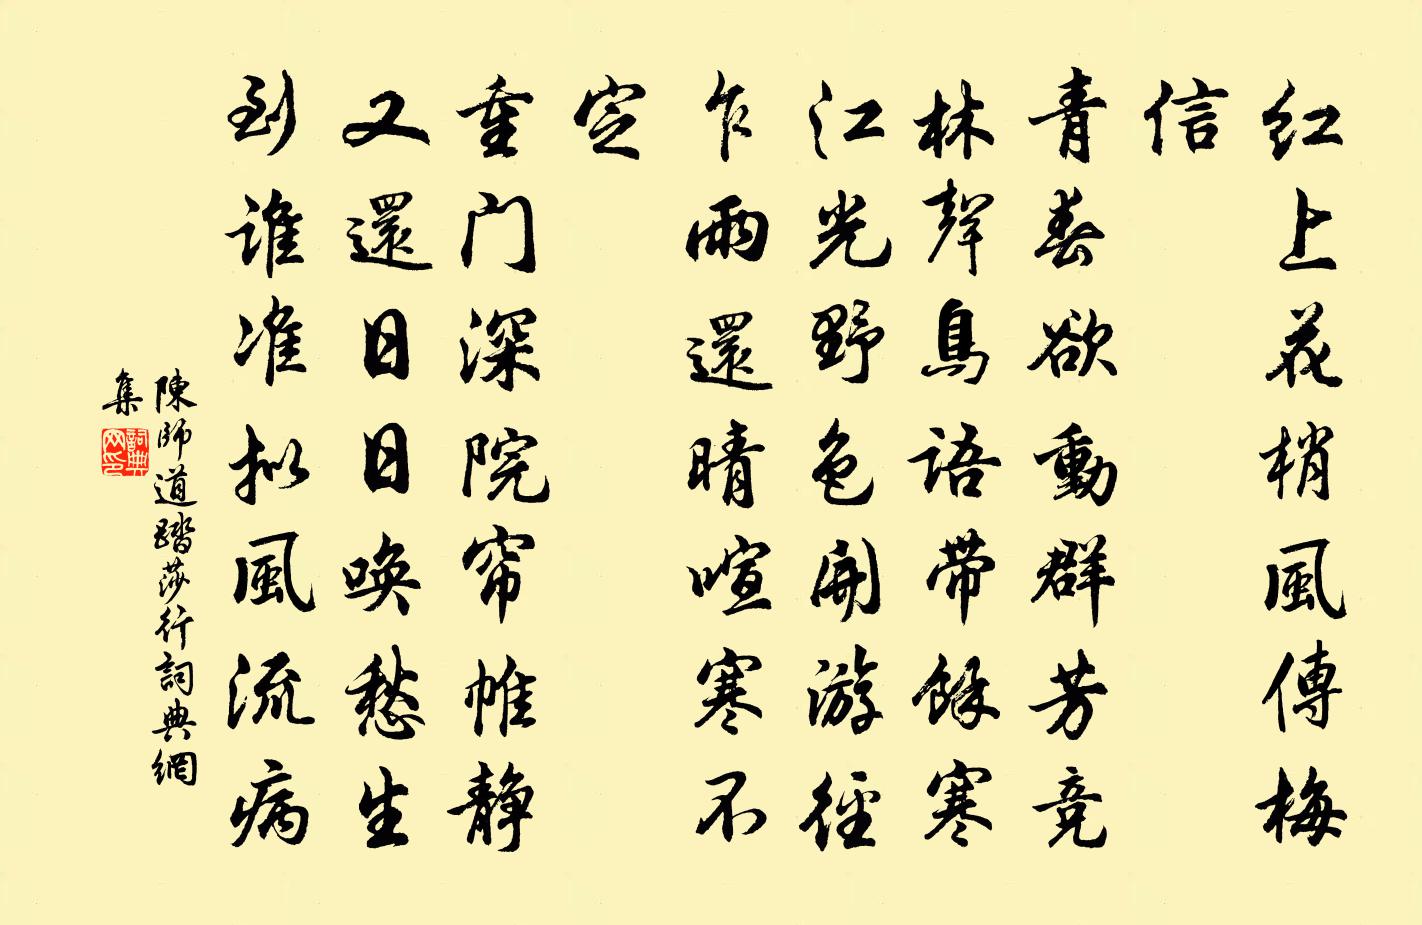 红上花梢風傳梅
信
青春欲動群芳競
林聲鳥語帶餘寒
江光野色開游徑
乍雨還晴喧寒不
定
重门深院帘帷静
又還日日唤愁生
到谁准拟風流病
陳師道踏莎行詞典網
集
詞典网印